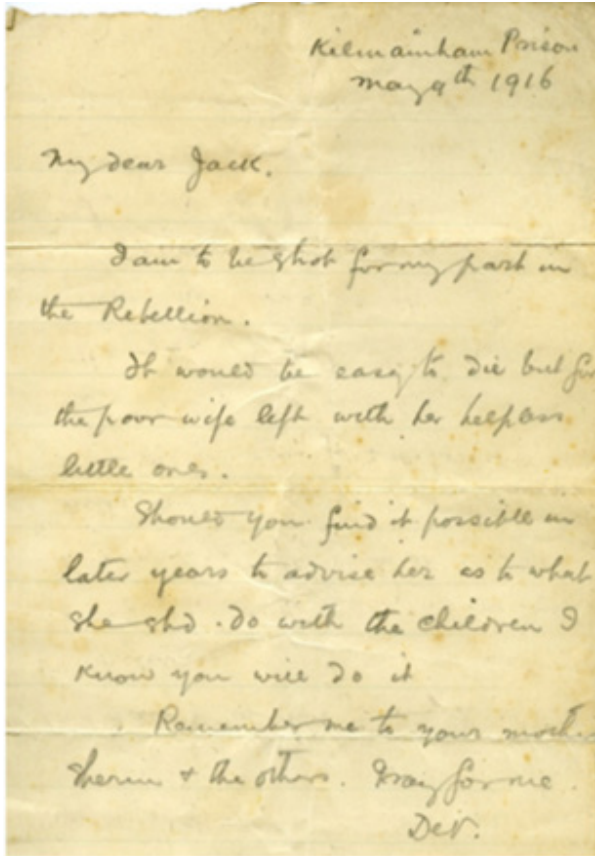 Kilmainham Prison
May 9th 1916
My dear Jack.
I am to be shot for my part in
the Rebellion.
It would be easy to die but for
the poor wife left with her helpless
little ones.
Should you find it possible in
later years to advise her as to what
she shd. do with the children I
know you will do it
Remember me to your moth
& the others. Pray for me.
DeV.